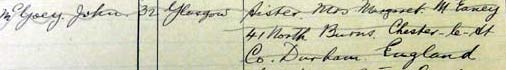 McGoey, John. 32 Glasgow Sister. Mrs Margaret McEaney
41 North Burns. Chester-le-St
Co. Durham. England